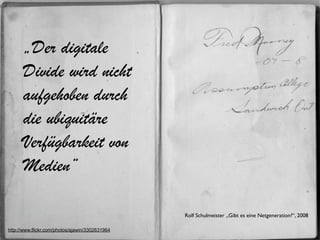 „Der digitale
Divide wird nicht
aufgehoben durch
die ubiquitäre
Verfügbarkeit von
Medien“
Assumption College
Sandwich Ont
Rolf Schulmeister „Gibt es eine Netgeneration?“, 2008
http://www.flickr.com/photos/sjawin/3302631964